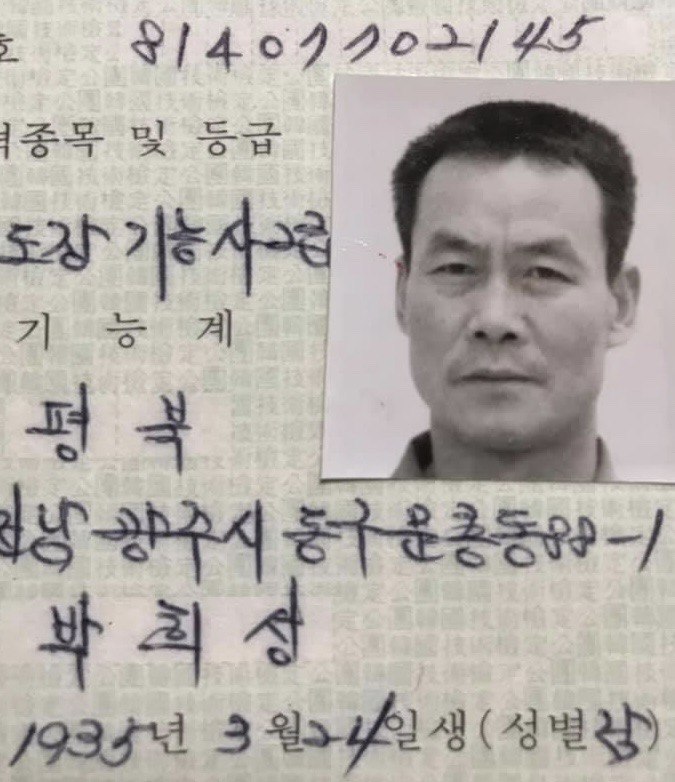 호 81407702145
격종목 및 등급
도장 기능사2급
기 능 계
평 북
전남 광주시 동구 운림동 88-1
박 희 성
1935년 3월 24일생(성별 남)